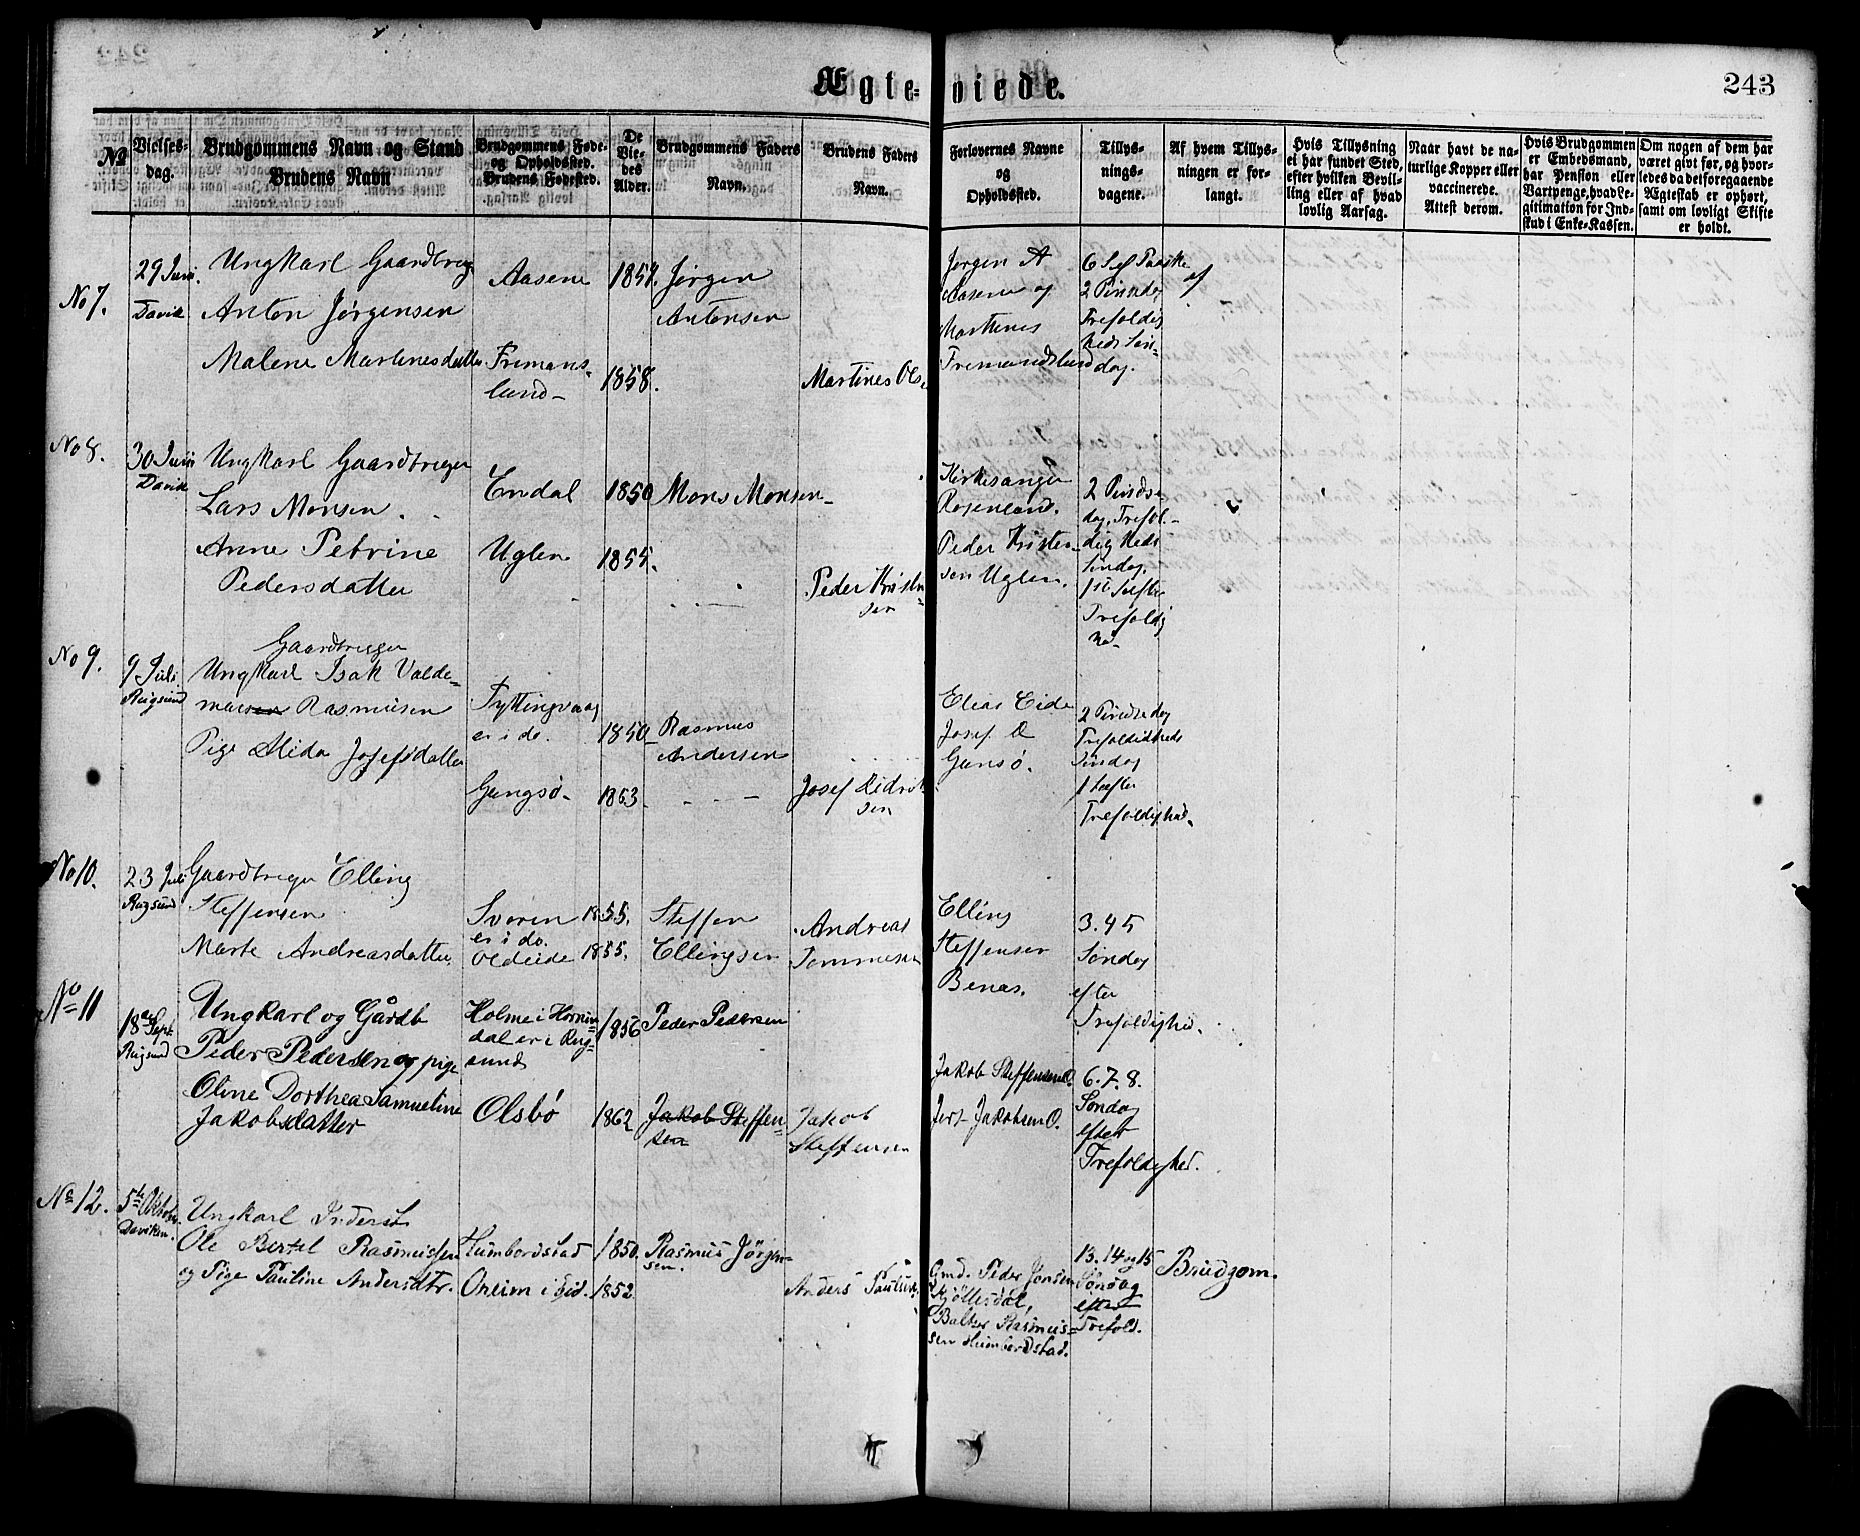 243
Ægte- viede.
№
Vielses-
dag.
Brudgommens Navn og Stand
Brudens Navn
Brudgommens Føde-
og Opholdssted.
Brudens Fødested.
De
Vie-
des
Alder.
Brudgommens Faders
Navn.
Brudens Faders
Navn.
Forlovernes Navne
og
Opholdssted.
Tillys-
nings-
dagene.
Af hvem Tillys-
ningen er for-
langt.
Hvis Tillysning
ei har fundet Sted,
efter hvilken Bevil-
ling eller af hvad
lovlig Aarsag.
Naar havt de na-
turlige Kopper eller
vaccinerede.
Attest derom.
Hvis Brudgommen
er Embedsmand,
har Pension eller
Vartpenge, hvad Le-
gitimation for Ind-
skud i Enke-Kassen.
Om nogen af dem har
været givt før, og hvor-
ledes da det foregaaende
Ægteskab er ophørt,
samt om lovligt Skifte
er holdt.
No 7.
29 Juni.
Davik
Ungkarl Gaardbruger
Anton Jørgensen
Malene Martinesdatter
Aasene
Fremans-
lund-
1857.
1858.
Jørgen
Antonsen
Martines Ols
Jørgen A
Aasene og
Marthines
Fremandslund
6 S ef Paaske
2 Pinsedag
Trefoldig
heds Søn-
dag.
No 8.
30 Juni
Davik
Ungkarl Gaardbruger
Lars Monsen
Anne Petrine
Pedersdatter
Endal
Uglen
1850
1855.
Mons Monsen-
Peder Kristen
sen
Kirkesanger
Rosenlund.
Peder Kristen-
sen Uglen.
2 Pindse-
dag, Trefol-
dig heds
Søndag,
1ste S efter
Trefoldig
hd.
No 9.
9 Juli.
Rugsund
Gaardbruger
Ungkarl Isak Valde-
marsen Rasmusen
Pige Alida Josefsdatter
Fyttingvaag
er i do.
Gangsø-
1850-
1863
Rasmus
Andersen
Josef Didrik
sen
Elias Eide
Josef D
Gansø.
2 Pindsedag
Trefoldidheds
Søndag
1 S efter
Trefoldighed.
No 10.
23 Juli
Rugsund
Gaardbruger Elling
Steffensen
Marte Andreasdatter
Svoren
er i do.
Oldeide
1855.
1855.
Steffen
Ellingsen
Andreas
Tommesen
Elling
Steffensen
Benas.
3. 4 5
Søndag
efter
Trefoldighed.
No 11
18de Sept.
Rugsund
Ungkarl og Gårdb
Peder Pedersen og pige
Oline Dorthea Samueline
Jakobsdatter
Holme i Hornin-
dal er i Rug-
sund
Olsbø
1856
1862
Peder Pedersen
Jakob Steffen-
sen
Jakob
Steffensen
Jakob Steffensen O.
Jert Jakobsen O.
6. 7. 8.
Søndag
efter
Trefoldighed.
No 12.
5te Oktober
Daviken.
Ungkarl Inderst
Ole Bertel Rasmussen
og Pige Pauline Andersdtr.
Humborstad
Oreim i Eid.
1850.
1852.
Rasmus Jørgen-
sen.
Anders Paulsen
Gmd. Peder Jensen
Kjøllesdal,
Balter Rasmus-
sen Humborstad.
13. 14 og 15
Søndag
efter
Trefold.
Brudgom.